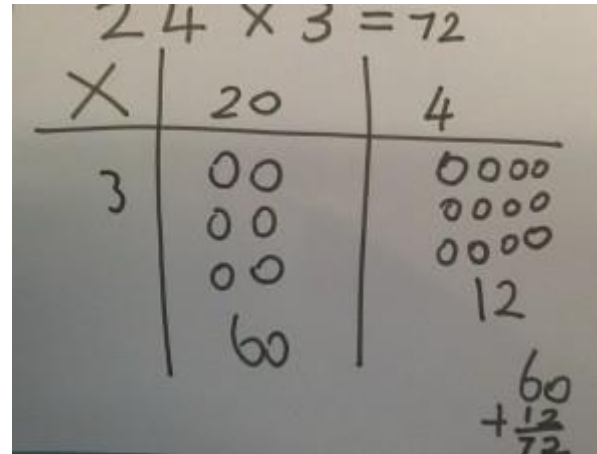 24 × 3 = 72
× 20 4
3 00 0000
00 0000
00 0000
12
60
60
+ 12
72